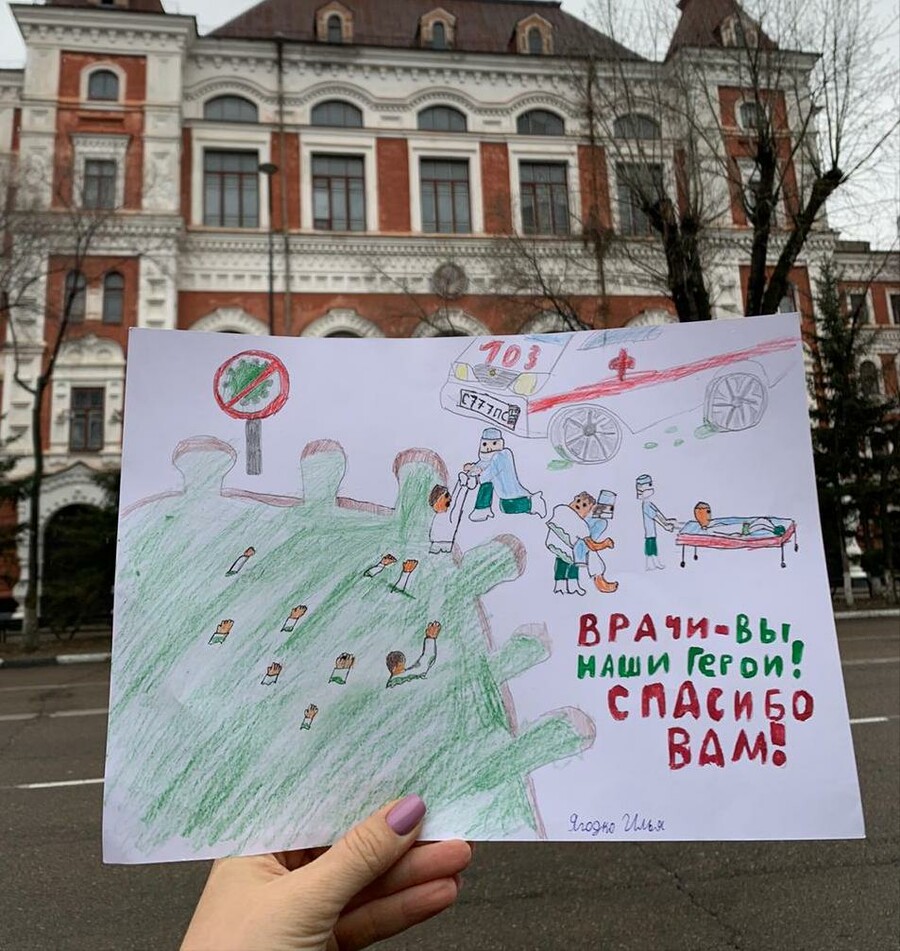 103
С777ПС
ВРАЧИ-ВЫ
НАШИ ГЕРОИ!
СПАСИБО
ВАМ!
Ягодко Илья